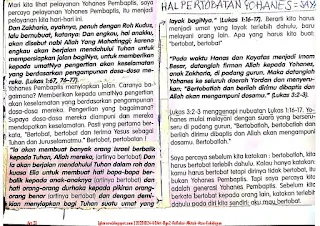 Mari kita lihat pelayanan Yohanes Pembaptis, saya
percaya pelayanan Yohanes Pembaptis, itu menjadi
pelayanan kita hari-hari ini.
Dan Zakharia, ayahnya, penuh dengan Roh Kudus,
lalu bernubuat, katanya: Dan engkau, hai anakku,
akan disebut nabi Allah Yang Mahatinggi; karena
engkau akan berjalan mendahului Tuhan untuk
mempersiapkan jalan bagiNya, untuk memberikan
kepada umatNya pengertian akan keselamatan
yang berdasarkan pengampunan dosa-dosa
mereka. (Lukas 1:67, 76-77).
Yohanes Pembaptis menyiapkan jalan. Caranya ba-
gaimana? Memberikan kepada umatNya pengertian
akan keselamatan yang berdasarkan pengampunan
dosa-dosa mereka. Pengertian yang bagaimana?
supaya dosa-dosa mereka diampuni dan mereka
mendapatkan keselamatan. Pasti yang pertama ber-
kata, "Bertobat, bertobat dan terima Yesus sebagai
Tuhan dan Juruselamatmu." Bertobat, pertobatan !
"Ia akan membuat banyak orang Israel berbalik
kepada Tuhan, Allah mereka, (artinya bertobat) dan
ia akan berjalan mendahului Tuhan dalam roh dan
kuasa Elia untuk membuat hati bapa-bapa ber-
balik kepada anak-anaknya (artinya bertobat) dan
hati orang-orang durhaka kepada pikiran orang-
orang benar (artinya bertobat) dan dengan demi-
kian menyiapkan bagi Tuhan suatu umat yang
HAL PERTOBATAN YOHANES - SAYA
layak bagiNya." (Lukas 1:16-17). Berarti kita harus
menjadi umat yang layak terlebih dahulu, baru
melayani orang lain. Apa yang harus kita buat?
bertobat, bertobat!
"Pada waktu Hanas dan Kayafas menjadi Imam
Besar, datanglah firman Allah kepada Yohanes,
anak Zakharia, di padang gurun. Maka datanglah
Yohanes ke seluruh daerah Yordan dan menyeru-
kan: "Bertobatlah dan berilah dirimu dibaptis dan
Allah akan mengampuni dosamu." (Lukas 3:2-3).
Lukas 3:2-3 menggenapi nubuatan Lukas 1:16-17. Yo-
hanes mulai melayani dengan suara yang berseru-
seru di padang gurun, "Bertobatlah, bertobatlah dan
dirimu dibaptis dan Allah akan mengampuni
dosamu. Bertobatlah."
Saya percaya sebelum kita katakan : bertobatlah, kita
harus bertobat terlebih dahulu. Kalau hanya katakan
kamu harus bertobat tetapi dirinya tidak bertobat, itu
bukan Yohanes Pembaptis. Tapi saya percaya kita
adalah generasi Yohanes Pembaptis. Sebelum kita
katakan orang lain harus bertobat, katakan terlebih
dahulu pada diri kita sendiri, aku mau bertobat.